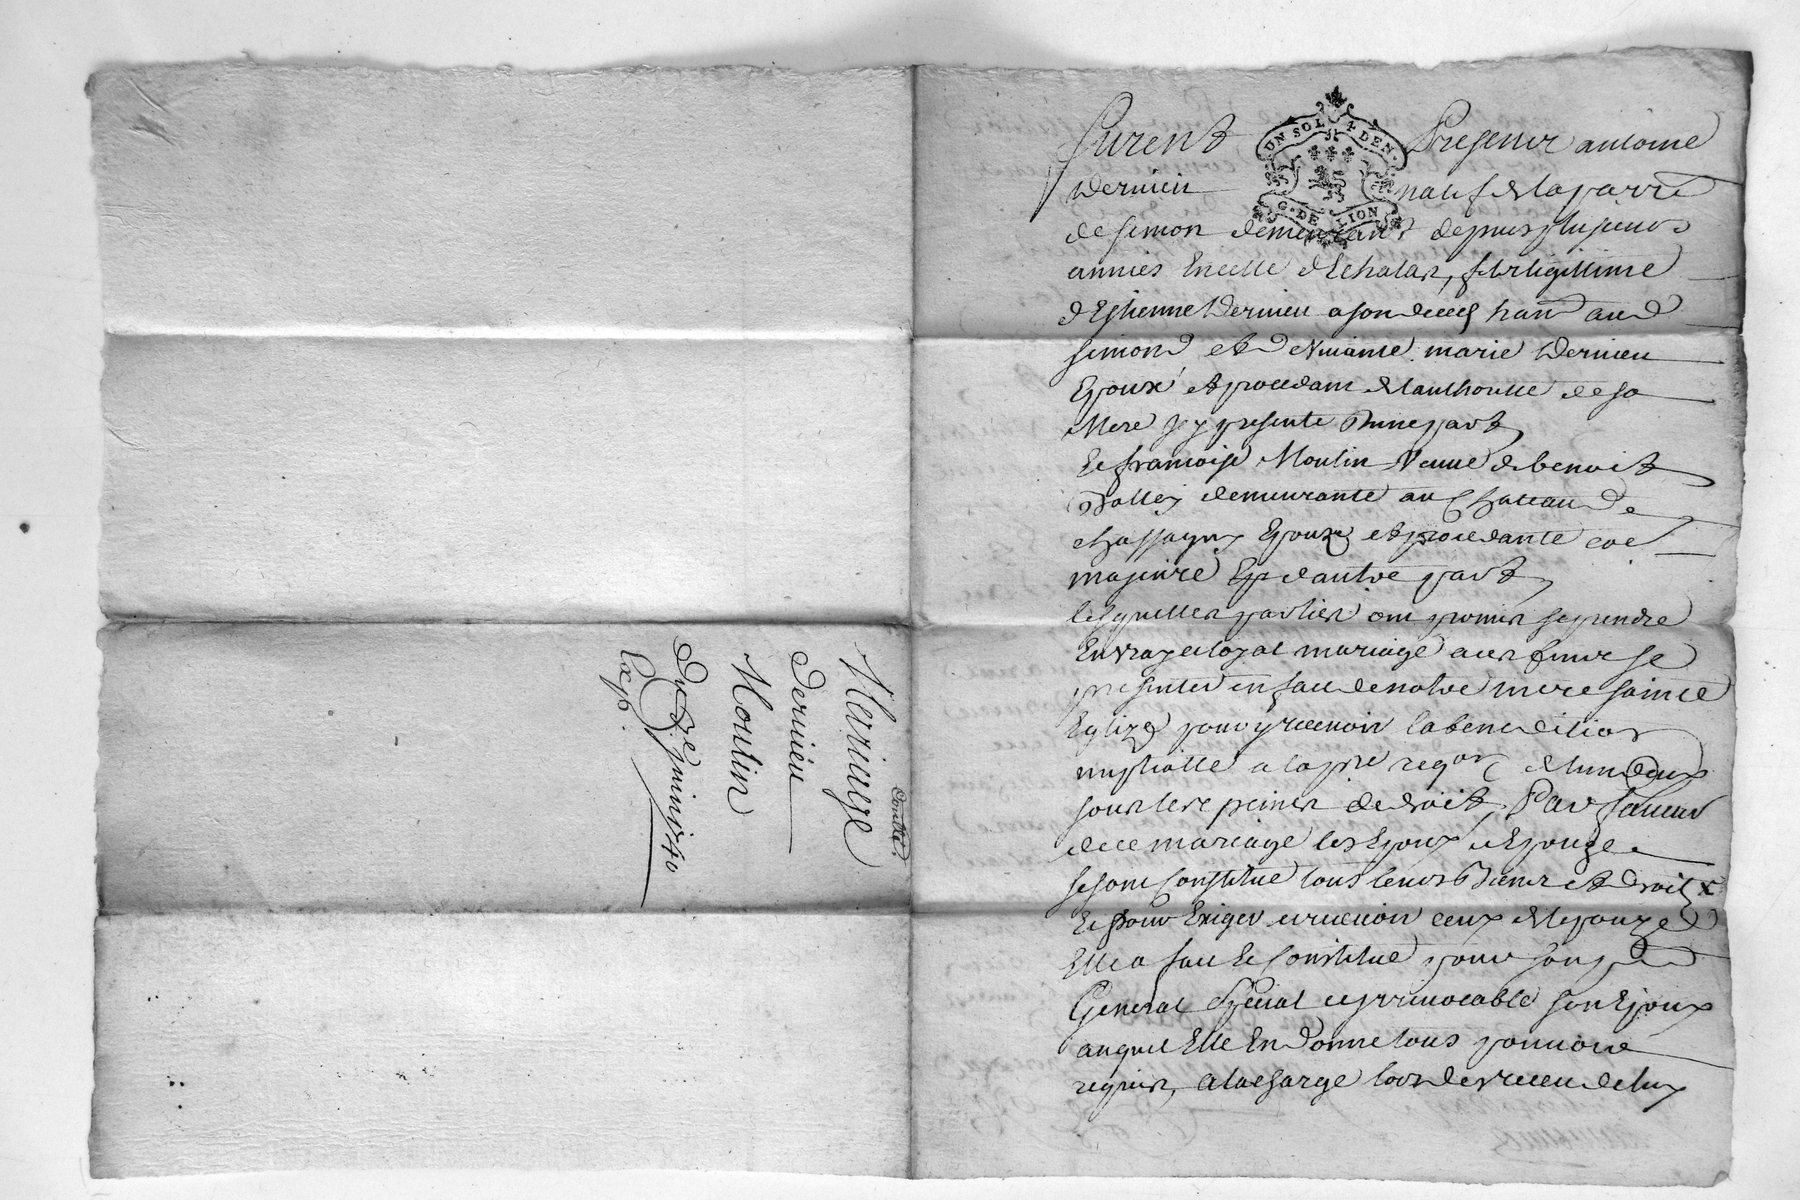 Contrat
Mariage
Dernieu
Moulin
Du 2e Juin 1740
Exp
UN SOL 4 DEN.
G. DE LION
furent Presens antoine
Dernieu natif de la parre
de simon demeurant depuis plusieurs
annies En celle d'Echalas, fils legitime
d'Estienne Dernieu a son deces hant aud
simond et de vivante marie Dernieu
Epoux et procedant de l'authoritte de sa
Mere icy presente d'une part
Et francoise Moulin Veuve de benoit
demeurante au Chateau de
chassagny Epouze et procedante coe
majeure Exp d'autre part
lesquelles parties ont promis se prendre
En vray et loyal mariage a ces fins se
presenter en face de notre mere sainte
Eglize pour y recevoir la benediction
nuptialle a la pre reqon de l'un deux
sous les peines de droit, Par faveur
de ce mariage les Epoux et Epouze
se sont Constitué tous leurs Biens et droits x
Et pour Exiger et recevoir ceux de l'epouze
Elle a fait et Constitué pour son
General special et irrevocable son Epoux
auquel Elle En donne tous pouvoirs
requis, a la charge lors de receu de luy